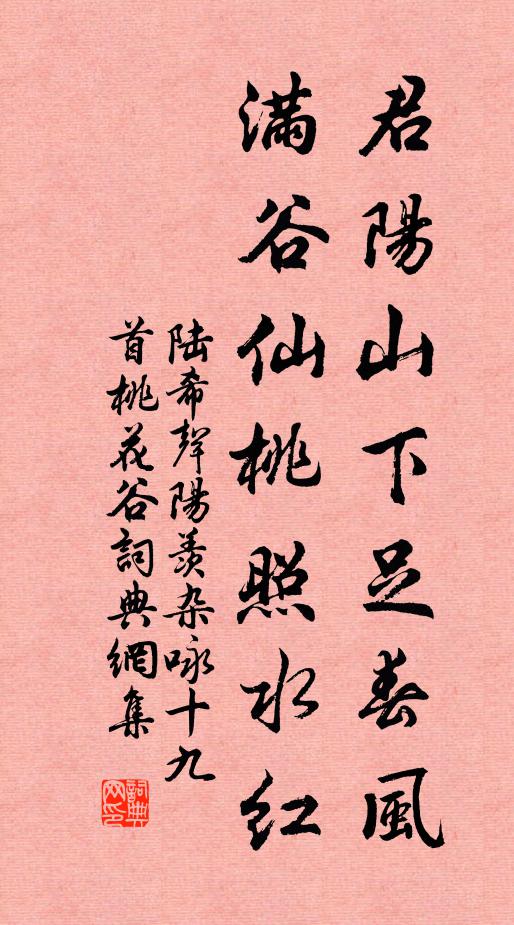 君陽山下足春風
滿谷仙桃照水紅
陆希聲陽羨杂咏十九
首桃花谷詞典網集
詞典网印